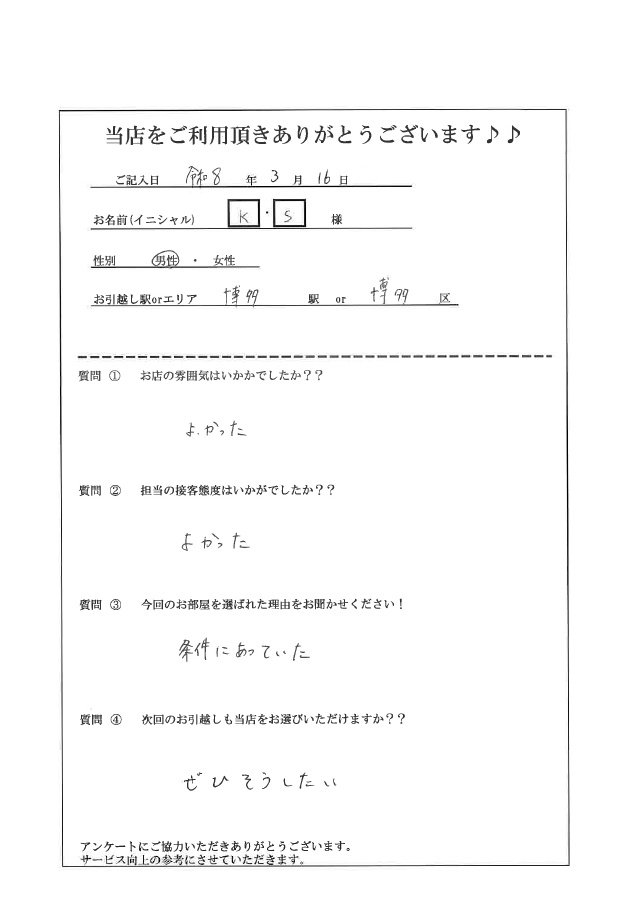 当店をご利用頂きありがとうございます♪♪
ご記入日 令和8 年 3 月 16 日
お名前(イニシャル) K ・ S 様
性別 男性 ・ 女性
お引越し駅orエリア 博多 駅 or 博多 区
質問 ① お店の雰囲気はいかかでしたか??
よかった
質問 ② 担当の接客態度はいかがでしたか??
よかった
質問 ③ 今回のお部屋を選ばれた理由をお聞かせください!
条件にあっていた
質問 ④ 次回のお引越しも当店をお選びいただけますか??
ぜひそうしたい
アンケートにご協力いただきありがとうございます。
サービス向上の参考にさせていただきます。